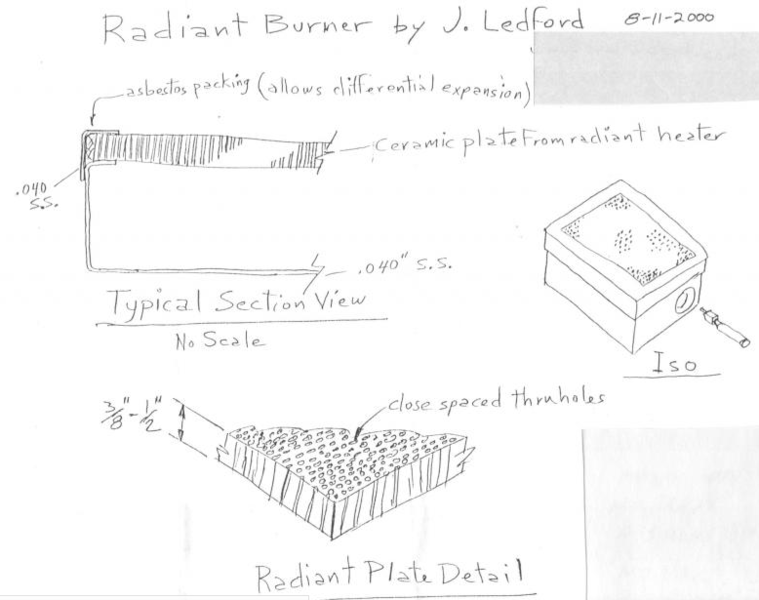 Radiant Burner by J. Ledford 8-11-2000
asbestos packing (allows differential expansion)
ceramic plate From radiant heater
.040
S.S.
.040" S.S.
Typical Section View
No Scale
Iso
3/8" - 1/2"
close spaced thruholes
Radiant Plate Detail